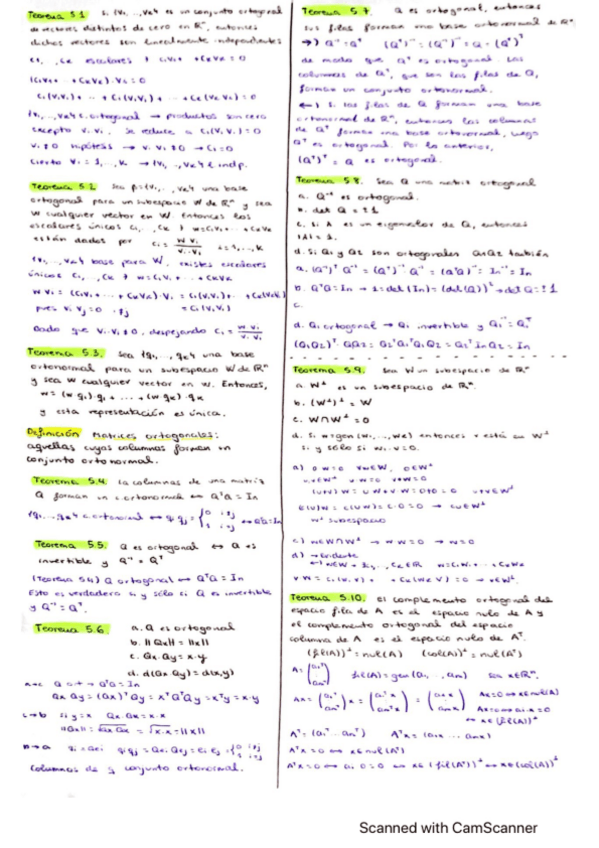 Teorema 5.1 Si {v1, ..., vk} es un conjunto ortogonal
de vectores distintos de cero en ℝⁿ, entonces
dichos vectores son linealmente independientes
c1, , ck escalares / c1v1+ +ckvk = 0
(c1v1+ ··· +ckvk)·vi = 0
c1(v1vi) + ·· + ci(vivi) + ·· + ck(vkvi) = 0
{v1, .., vk} c. ortogonal → productos son cero
excepto vi·vi. Se reduce a ci(vi·vi) = 0
vi ≠ 0 hipótesis → vi·vi ≠ 0 → ci = 0
cierto ∀i = 1, .., k → {v1, .., vk} l indp.
Teorema 5.2 Sea β={v1, .., vk} una base
ortogonal para un subespacio W de ℝⁿ y sea
w cualquier vector en W. Entonces los
escalares únicos c1, , ck / w = c1v1+ ·· +ckvk
están dados por ci = w·vi / vi·vi i = 1, .., k
{v1, .., vk} base para W. existen escalares
únicos c1, , ck / w = c1v1+ ·· + ckvk
w·vi = (c1v1+ ·· + ckvk)·vi = c1(v1vi)+ ·· + ck(vkvi)
pues vi·vj = 0 i≠j = ci(vivi)
Dado que vi·vi ≠ 0, despejando ci = w·vi / vi·vi
Teorema 5.3. Sea {q1, .., qk} una base
ortonormal para un subespacio W de ℝⁿ
y sea w cualquier vector en W. Entonces,
w = (w·q1)·q1 + ... + (w·qk)·qk
y esta representación es única.
Definición Matrices ortogonales:
aquellas cuyas columnas forman un
conjunto ortonormal.
Teorema 5.4. La columnas de una matriz
Q forman un c.ortonormal ↔ QᵀQ = In
{q1, .., qk} c.ortonormal ↔ qi·qj = { 0 i≠j 1 i=j ↔ QᵀQ = In
Teorema 5.5. Q es ortogonal ↔ Q es
invertible y Q⁻¹ = Qᵀ
(Teorema 5.4) Q ortogonal ↔ QᵀQ = In
Esto es verdadero si y sólo si Q es invertible
y Q⁻¹ = Qᵀ.
Teorema 5.6 a. Q es ortogonal
b. ||Qx|| = ||x||
c. Qx·Qy = x·y
d. d(Qx,Qy) = d(x,y)
a→c Q o.t → QᵀQ = In
Qx·Qy = (Qx)ᵀQy = xᵀQᵀQy = xᵀy = x·y
c→b Si y = x Qx·Qx = x·x
||Qx|| = √Qx·Qx = √x·x = ||x||
b→a qi = Qei qi·qj = Qei·Qej = ei·ej = { 0 i≠j 1 i=j
columnas de Q conjunto ortonormal.
Teorema 5.7. Q es ortogonal, entonces
sus filas forman una base ortonormal de ℝⁿ
→) Q⁻¹ = Qᵀ (Qᵀ)⁻¹ = (Q⁻¹)⁻¹ = Q = (Qᵀ)ᵀ
de modo que Qᵀ es ortogonal. Las
columnas de Qᵀ, que son las filas de Q,
forman un conjunto ortonormal.
←) Si las filas de Q forman una base
ortonormal de ℝⁿ, entonces las columnas
de Qᵀ forman una base ortonormal, luego
Qᵀ es ortogonal. Por lo anterior,
(Qᵀ)ᵀ = Q es ortogonal.
Teorema 5.8. Sea Q una matriz ortogonal
a. Q⁻¹ es ortogonal.
b. det Q = ±1
c. Si λ es un eigenvalor de Q, entonces
|λ| = 1.
d. Si Q1 y Q2 son ortogonales Q1Q2 también
a. (Q⁻¹)ᵀ Q⁻¹ = (Qᵀ)⁻¹ Q⁻¹ = (QQᵀ)⁻¹ = In⁻¹ = In
b. QᵀQ = In → 1 = det(In) = (det(Q))² → det Q = ±1
c.
d. Qi ortogonal → Qi invertible y Qi⁻¹ = Qiᵀ
(Q1Q2)ᵀ Q1Q2 = Q2ᵀQ1ᵀQ1Q2 = Q2ᵀ In Q2 = In
Teorema 5.9. Sea W un subespacio de ℝⁿ
a. W⊥ es un subespacio de ℝⁿ.
b. (W⊥)⊥ = W
c. W∩W⊥ = 0
d. Si W=gen(w1, .., wk) entonces v está en W⊥
si y sólo si wi·v = 0.
a) 0·w = 0 ∀w∈W, 0∈W⊥
u,v∈W⊥ u·w = 0 v·w = 0
(u+v)·w = u·w + v·w = 0+0 = 0 u+v∈W⊥
c(u)w = c(u·w) = c·0 = 0 → cu∈W⊥
W⊥ subespacio
c) w∈W∩W⊥ → w·w = 0 → w = 0
d) → evidente
← w∈W → ∃c1, , ck∈ℝ w = c1w1+ ·· + ckwk
v·w = c1(v·w1) + ·· + ck(wk·v) = 0 → v∈W⊥.
Teorema 5.10. El complemento ortogonal del
espacio fila de A es el espacio nulo de A y
el complemento ortogonal del espacio
columna de A es el espacio nulo de Aᵀ.
(fil(A))⊥ = nul(A) (col(A))⊥ = nul(Aᵀ)
Scanned with CamScanner